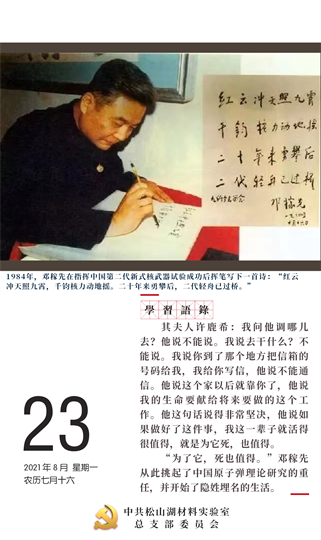 红云冲天照九霄
千钧核力动地摇
二十年来勇攀后
二代轻舟已过桥
邓稼先
1984年，邓稼先在指挥中国第二代新式核武器试验成功后挥笔写下一首诗：“红云
冲天照九霄，千钧核力动地摇。二十年来勇攀后，二代轻舟已过桥。”
學習語錄
其夫人许鹿希：我问他调哪儿
去？他说不能说。我说去干什么？不
能说。我说你到了那个地方把信箱的
号码给我，我给你写信，他说不能通
信。他说这个家以后就靠你了，他说
我的生命要献给将来要做的这个工
作。他这句话说得非常坚决，他说如
果做好了这件事，我这一辈子就活得
很值得，就是为它死，也值得。
“为了它，死也值得。”邓稼先
从此挑起了中国原子弹理论研究的重
任，并开始了隐姓埋名的生活。
23
2021年8月 星期一
农历七月十六
中共松山湖材料实验室
总支部委员会